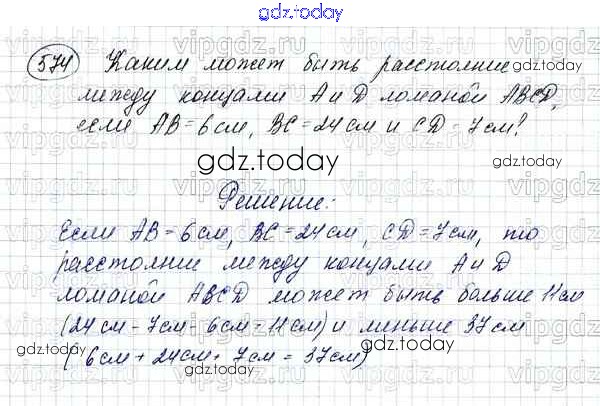 gdz.today
574 Каким может быть расстояние
между концами A и D ломаной ABCD,
если AB = 6 см, BC = 24 см и CD = 7 см?
gdz.today
gdz.today
gdz.today
gdz.today
Решение:
Если AB = 6 см, BC = 24 см, CD = 7 см, то
расстояние между концами A и D
ломаной ABCD может быть больше 11 см
(24 см - 7 см - 6 см = 11 см) и меньше 37 см
(6 см + 24 см + 7 см = 37 см)
gdz.today
gdz.today